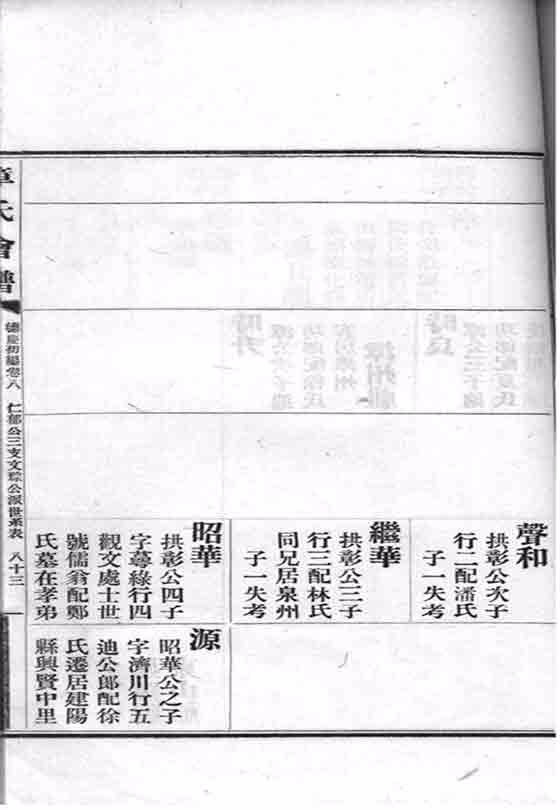 聲和
拱彰公次子
行二配潘氏
子一失考
繼華
拱彰公三子
行三配林氏
同兄居泉州
子一失考
昭華
拱彰公四子
字蕚綠行四
觀文處士世
號儒翁配鄭
氏墓在孝弟
源
昭華公之子
字濟川行五
迪公郎配徐
氏遷居建陽
縣興賢中里
章氏會譜
德慶初編卷八
仁郁公三支文琮公派世系表
八十三